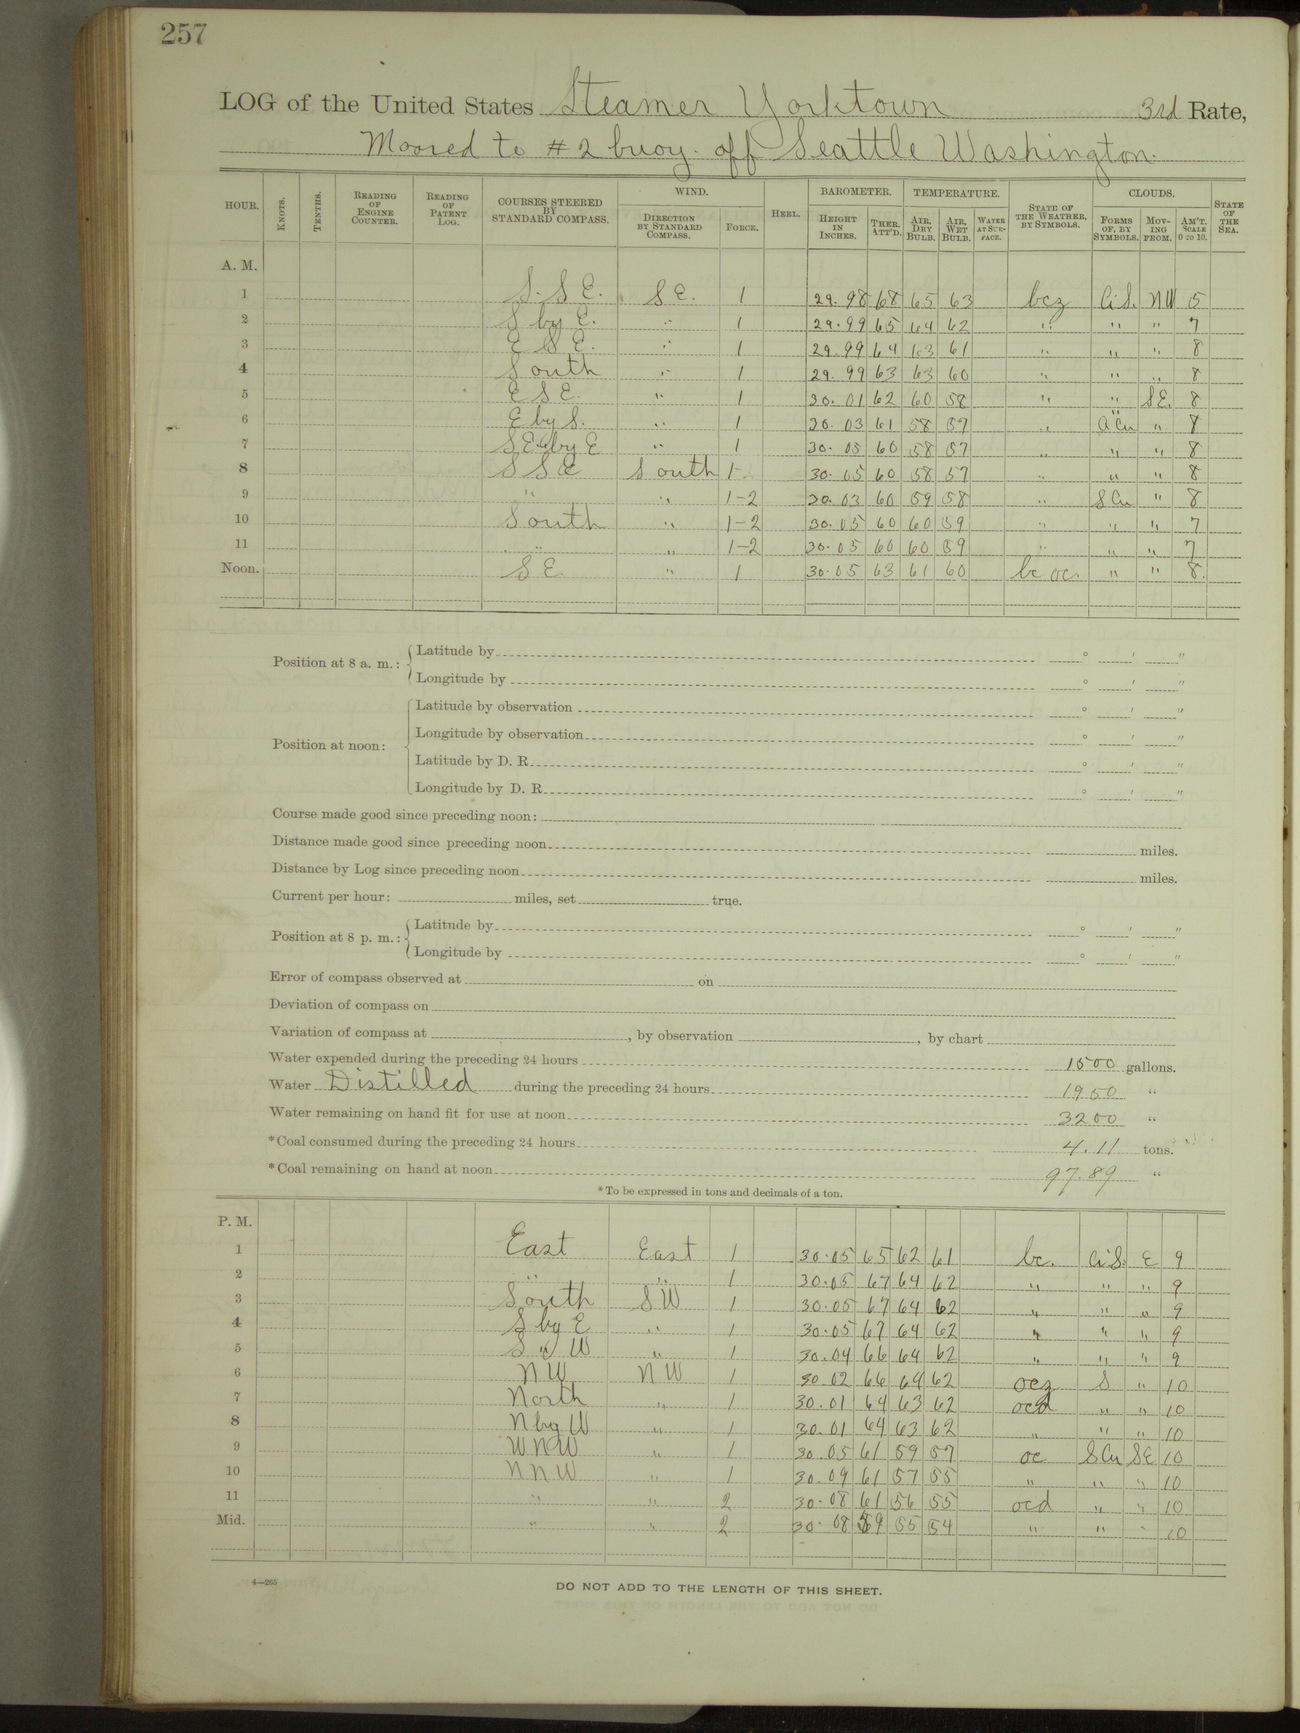 257
LOG of the United States Steamer Yorktown 3rd Rate,
Moored to #2 buoy off Seattle Washington.
HOUR. KNOTS. TENTHS. READING OF ENGINE COUNTER. READING OF PATENT LOG. COURSES STEERED BY STANDARD COMPASS. WIND. DIRECTION BY STANDARD COMPASS. FORCE. HEEL. BAROMETER. HEIGHT IN INCHES. THER. ATT'D. TEMPERATURE. AIR, DRY BULB. AIR, WET BULB. WATER AT SURFACE. STATE OF THE WEATHER, BY SYMBOLS. CLOUDS. FORMS OF, BY SYMBOLS. MOVING FROM. AM'T. SCALE 0 TO 10. STATE OF THE SEA.
A. M.
1 S. S E. S E. 1 29.98 68 65 63 bcz Ci.S. NW 5
2 S by E. " 1 29.99 65 64 62 " " " 7
3 E S E. " 1 29.99 64 63 61 " " " 8
4 South " 1 29.99 63 63 60 " " " 8
5 E S E. " 1 30.01 62 60 58 " " SE. 8
6 E by S. " 1 30.03 61 58 57 " A Cu " 8
7 SE by E " 1 30.05 60 58 57 " " " 8
8 S S E South 1 30.05 60 58 57 " " " 8
9 " " 1-2 30.03 60 59 58 " S Cu " 8
10 South " 1-2 30.05 60 60 59 " " " 7
11 " " 1-2 30.05 60 60 59 " " " 7
Noon. S E " 1 30.05 63 61 60 bc oc. " " 8.
Position at 8 a. m.: Latitude by ° ' "
Longitude by ° ' "
Position at noon: Latitude by observation ° ' "
Longitude by observation ° ' "
Latitude by D. R. ° ' "
Longitude by D. R. ° ' "
Course made good since preceding noon:
Distance made good since preceding noon miles.
Distance by Log since preceding noon miles.
Current per hour: miles, set true.
Position at 8 p. m.: Latitude by ° ' "
Longitude by ° ' "
Error of compass observed at on
Deviation of compass on
Variation of compass at , by observation , by chart
Water expended during the preceding 24 hours 1500 gallons.
Water Distilled during the preceding 24 hours 1950 "
Water remaining on hand fit for use at noon 3200 "
*Coal consumed during the preceding 24 hours 4.11 tons.
*Coal remaining on hand at noon 97.89 "
*To be expressed in tons and decimals of a ton.
P. M.
1 East East 1 30.05 65 62 61 bc. Ci S. E 9
2 " " 1 30.05 67 64 62 " " " 9
3 South S W 1 30.05 67 64 62 " " " 9
4 S by E " 1 30.05 67 64 62 " " " 9
5 S " W " 1 30.04 66 64 62 " " " 9
6 NW NW 1 30.02 66 64 62 ocz S " 10
7 North " 1 30.01 64 63 62 ocd " " 10
8 N by W " 1 30.01 64 63 62 " " " 10
9 WNW " 1 30.05 61 59 57 oc S Cu SE 10
10 NNW " 1 30.09 61 57 55 " " " 10
11 " " 2 30.08 61 56 55 ocd " " 10
Mid. " " 2 30.08 59 55 54 " " " 10
4—265
DO NOT ADD TO THE LENGTH OF THIS SHEET.